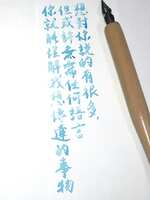 想對你說的有很多,
但或許無需任何語言
你就能理解我想傳達的事物